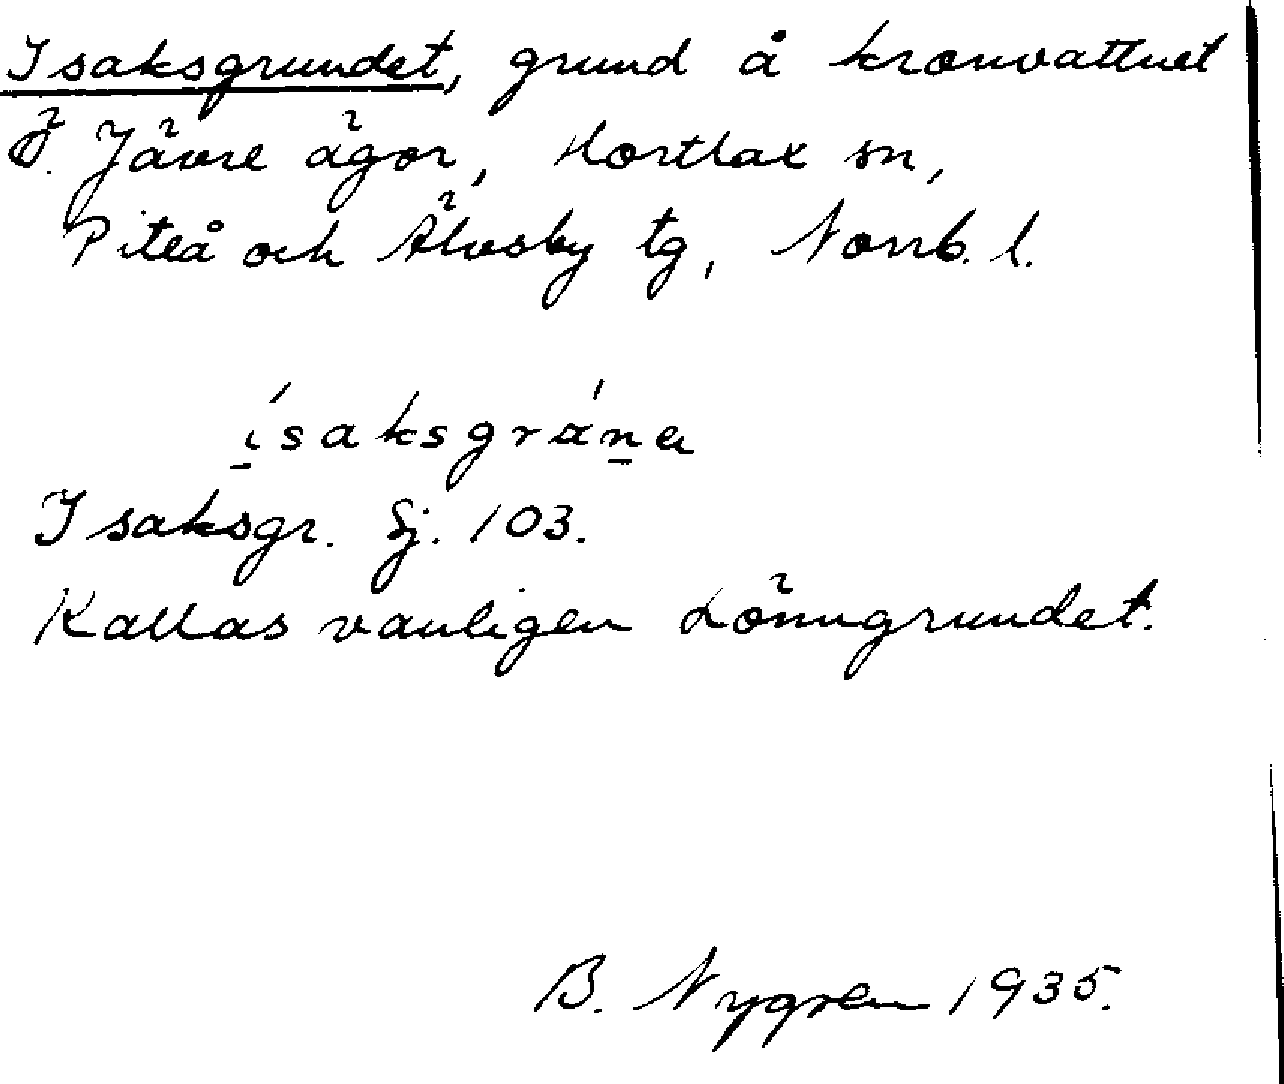 Isaksgrundet, grund å kronvattnet
Ö. Jävre ägor, Hortlax sn,
Piteå och Älvsby tg, Norrb. l.
Isaksgr. Sj. 103.
Kallas vanligen Lönngrundet.
B. Nygren 1935.